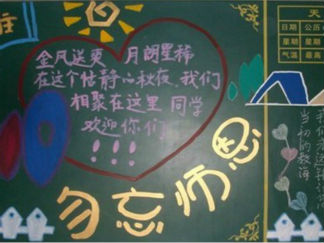 金风送爽 月朗星稀
在这个恬静的秋夜,我们
相聚在这里 同学
欢迎你们
!!!
勿忘师恩
天
日期 公历
星期 星期
气温 最高
当初的教诲